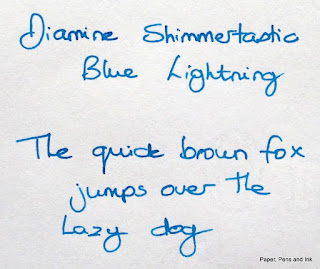 Diamine Shimmertastic
Blue Lightning
The quick brown fox
jumps over the
Lazy dog
Paper, Pens and Ink